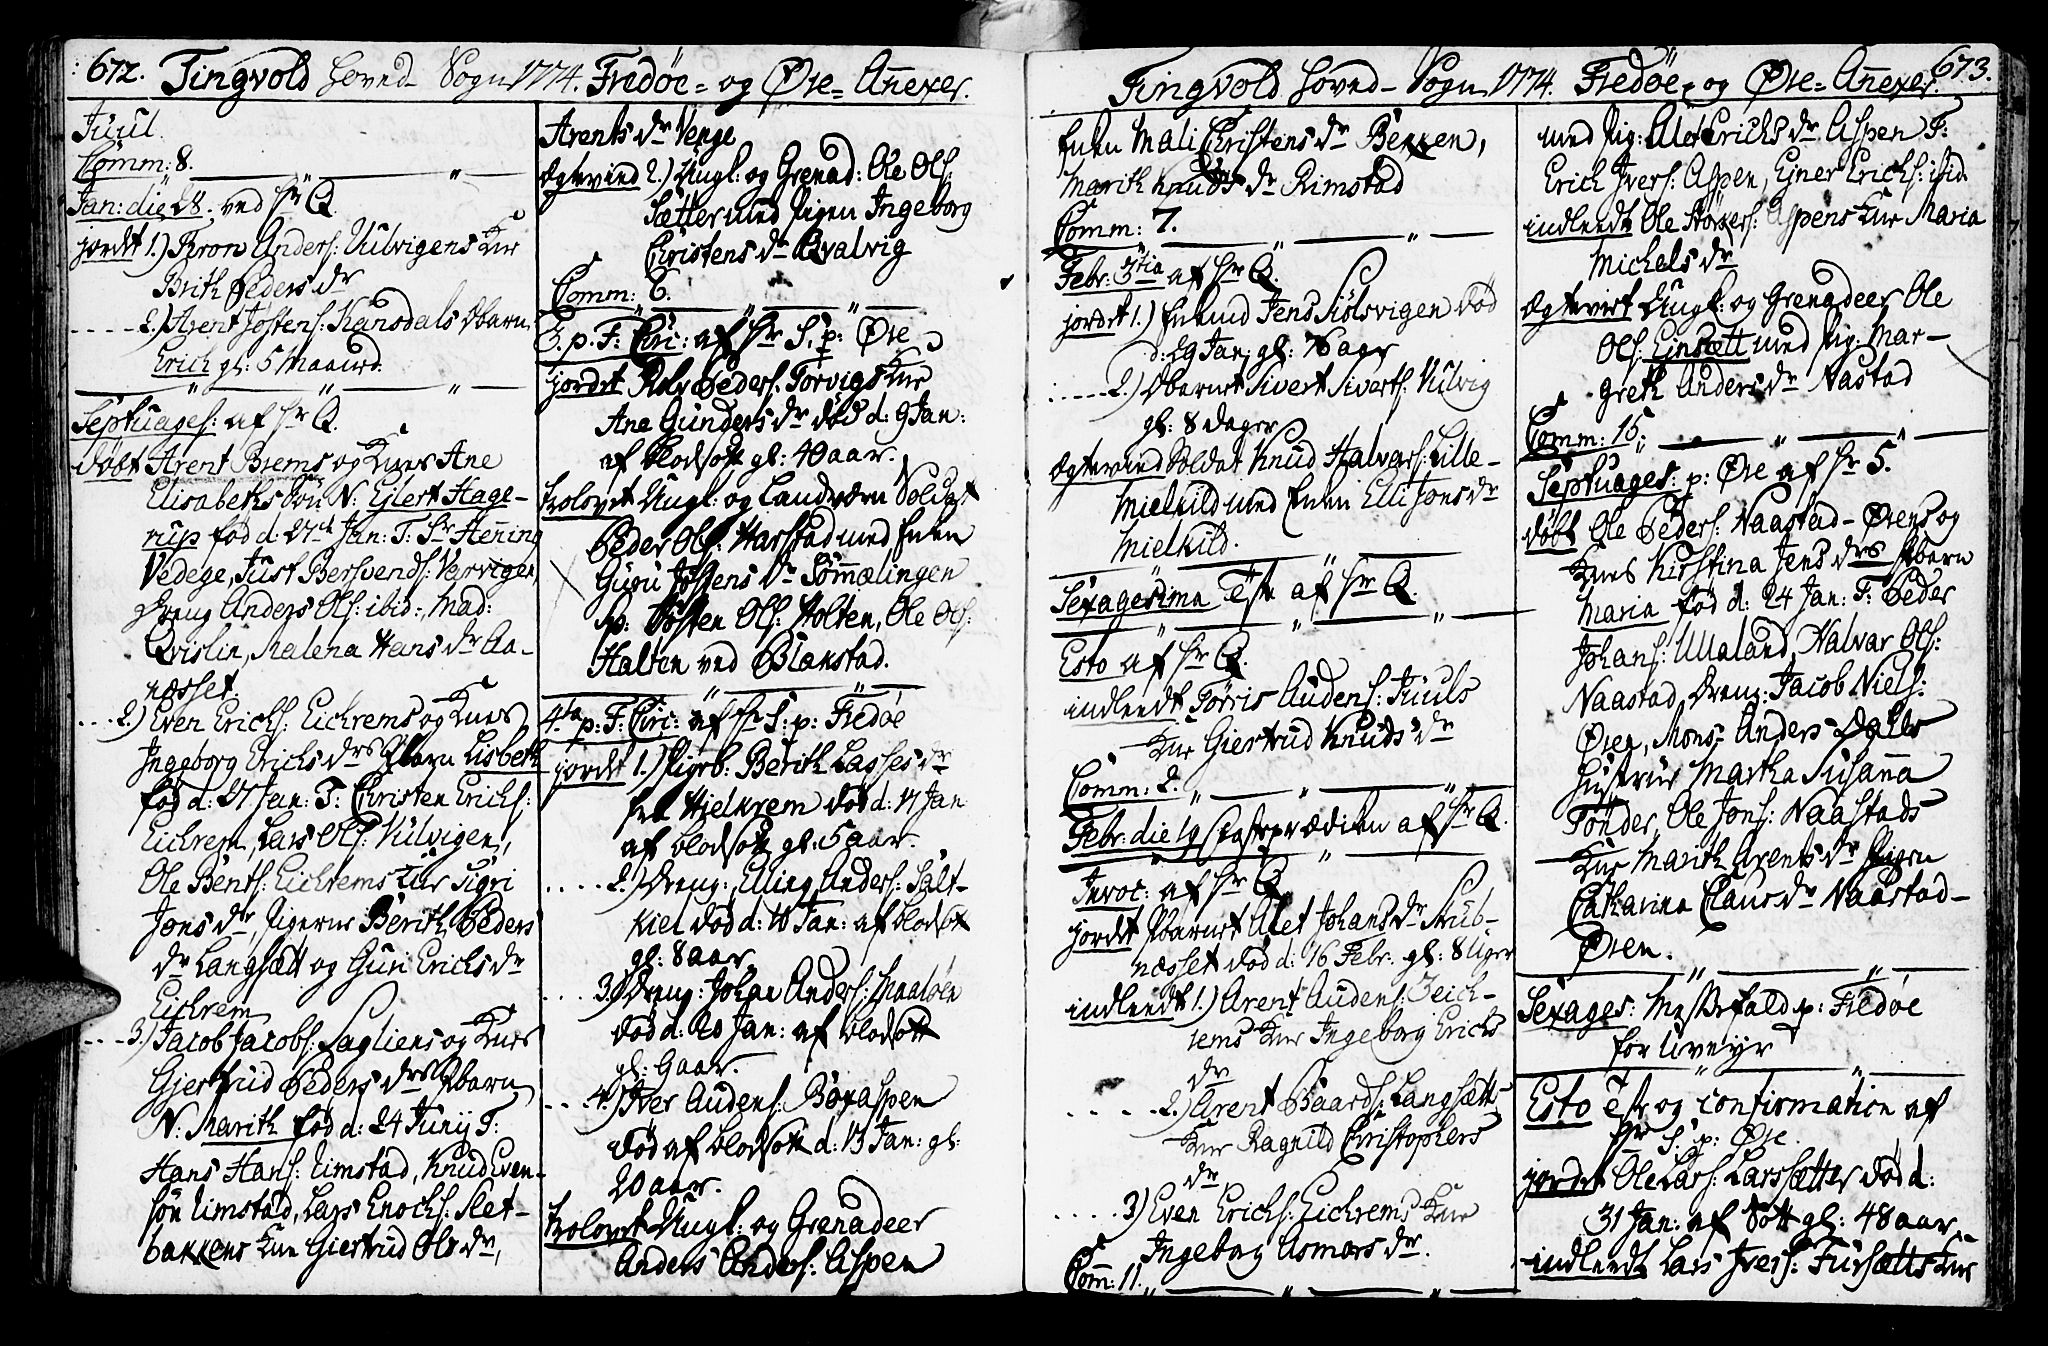 672. Tingvold Hoved- Sogn 1774. Fredøe- og Øre- Añexer.
Juul.
Comm: 8.
Jan: die 28. ved Hr Q.
jordet 1.) Bron Anders: Vulvigens Kur
Brith Peders dr
2.) Arent Jostens: Kansdals Dbarn
Erich gl: 5 Maaned.
Septuages: af Hr Q.
døbt Arent Brems og Kur Ane
Elisabeths Søn N: Ejlert Hage-
rup fød d. 27de Jan: T. Sr Hening
Vedege, Just Bersvends: Varvigen,
Dreng Anders Ols: ibid:, Mad:
Qvislin, Malena Hans dr Aa-
næsset.
2.) Even Erichs: Eichrems og Kur
Ingeborg Erichs drs Pbarn Lisbeth
fød d: 27 Jan: T: Christen Erichs:
Eichrem, Lars Ols: Vulvigen,
Ole Bents: Eichrems Kur Sigri
Jons dr, Pigerne Berith Peders
dr Langsætt og Guri Erichs dr
Eichrem
3.) Jacob Jacobs: Sagliens og Kur
Gjertrud Peders drs Pbarn
N: Marith fød d: 24 Junij T:
Hans Hans: Rimstad, Knud Even-
søn Rimstad, Lars Enochs: Slet-
bakkens Kur Giertrud Ols dr,
Arents dr Venge
Ægtevied 2.) Ungk: og Grenad: Ole Ols:
Sætter med Pigen Ingeborg
Christens dr Qvalvig
Comm: 6.
3. p. F: Circ: af Hr S. p: Øre
jordet Rolv Peders: Torvigs Kur
Ane Gunders dr død d: 9 Jan:
af blodsott gl: 40 aar.
trolovet Ungk: og Landværn Soldat
Peder Ols: Harstad med Enken
Guru Jostens dr Sømælingen
Sp: Josten Ols: Holten, Ole Ols:
Halten ved Blækstad.
4ta p: F: Circ: af Hr S: p: Fredøe
jordet 1.) Pigeb: Berith Lasses dr
fra Hjelkrem død d: 17 Jan
af blodsott gl: 5 aar.
2.) Dreng: Elling Anders: Salt-
kiel død d: 18 Jan: af blodsott
gl: 8 aar
3.) Dreng: Johan Anders: Maaløen
død d: 20 Jan: af blodsott
gl: 9 aar.
4.) Iver Audens: Boxaspen
død af blodsott d: 13 Jan: gl:
20 aar.
trolovet Ungk: og Grenadeer
Anders Anders: Aspen
Tingvold Hoved- Sogn 1774. Fredøe- og Øre- Añexer. 673.
Enken Mali Christens dr Bekken,
Marith Knuds dr Rimstad
Comm: 7.
Febr: 3tia af Hr Q.
jordet 1.) Enkemd Jens Sølsvigen død
d: 29 Jan: gl: 76 aar
2.) Dbarnet Sivert Siverts: Vulvig
gl: 8 dager
Ægtevied Soldat Knud Halvors: Lille-
Mielkild med Enken Elli Jons dr
Mielkild.
Sexagesima Test af Hr Q.
Esto af Hr Q.
indleedt Torris Audens: Juuls
Kur Giertrud Knuds dr
Comm: 2.
Febr: die 19 Fasteprædiken af Hr Q.
Invoc: af Hr Q
jordet Pbarnet Alet Johans dr Stub-
næsset død d: 16 Febr: gl: 8 Uger
indleedt 1.) Arent Audens: Beich-
rems Kur Ingeborg Erichs
dr
2.) Arent Baards: Langsætts
Kur Ragnild Christophers
dr
3) Even Erichs: Eichrems Kur
Ingeborg Asmors dr.
Com: 11.
med Pig: Alet Erichs dr Aspen T:
Erich Ivers: Aspen, Ejner Erichs: ibid
indleedt Ole Størkers: Aspens Kur Maria
Michels dr
Ægteviet Ungk: og Grenadeer Ole
Ols: Einsætt med Pig: Mar-
greth Anders dr Nastad
Comm: 15:
Septuages: p: Øre af Hr S.
døbt Ole Peders: Naastad- Ørens og
Kur Kirstina Jens drs Pbarn
Maria fød d: 24 Jan: T: Peder
Johans: Ulleland, Halvar Ols:
Naastad, Dreng: Jacob Niels:
Øren, Mons: Anders Dahls
Hustrue Martha Susanna
Tønder, Ole Jons: Naastads
Kur Marith Arents dr Pigen
Catharina Claus dr Naastad-
Øren.
Sexages: Messefald p: Fredøe
for Uveyr
Esto Test og Confirmation af
Hr S. p: Øre.
jordet Ole Lars: Larssætter død d:
31 Jan: af Sott gl: 48 aar
indleedt Lars Ivers: Fursætts Kur